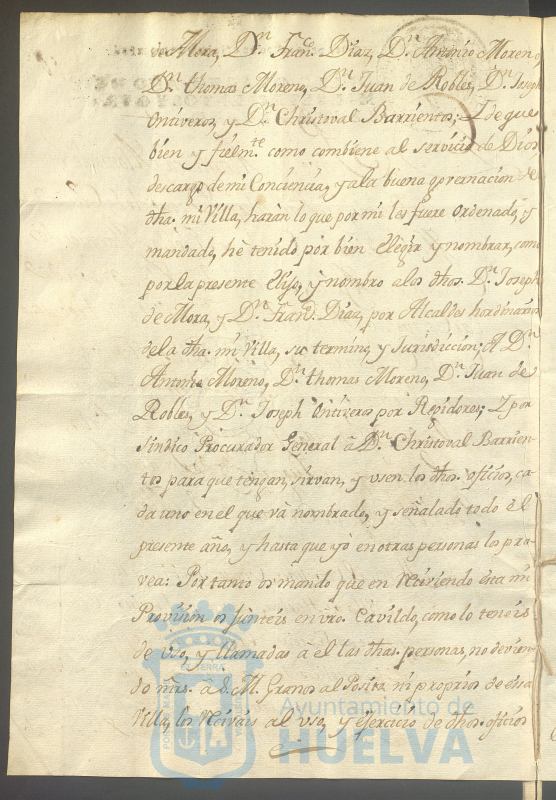 de Mora, Dn. Franco. Diaz, Dn. Antonio Moreno
Dn. thomas Moreno, Dn. Juan de Robles, Dn. Joseph
Ontiveros, y Dn. Christoval Barrientos; Y de que
bien y fielmte. como combiene al servicio de Dios
descargo de mi Conciencia, y a la buena governacion de
dha. mi Villa, haràn lo que por mi les fuere ordenado, y
mandado, hè tenido por bien Elegir y nombrar, como
por la presente Elijo, y nombro a los dhos. Dn. Joseph
de Mora, y Dn. Franco. Diaz, por Alcaldes hordinarios
de la dha. mi Villa, su termino, y Jurisdiccion; A Dn.
Antonio Moreno, Dn. thomas Moreno, Dn. Juan de
Robles, y Dn. Joseph Ontiveros por Regidores; Y por
Sindico Procurador General à Dn. Christoval Barrien-
tos para que tengan, sirvan, y usen los dhos. oficios, ca-
da uno en el que và nombrado, y señalado todo el
presente año, y hasta que yo en otras personas los pro-
vea: Por tanto os mando que en reciviendo esta mi
Provision os junteis en vro. Cavildo, como lo teneis
de uso, y llamadas à el las dhas. personas, no devien-
do mrs. à S. M. Granos al Posito, ni proprios de essa
Villa, los recivais al uso, y exercicio de dhos. oficios
Ayuntamiento de
HUELVA